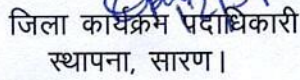 जिला कार्यक्रम पदाधिकारी
स्थापना, सारण।